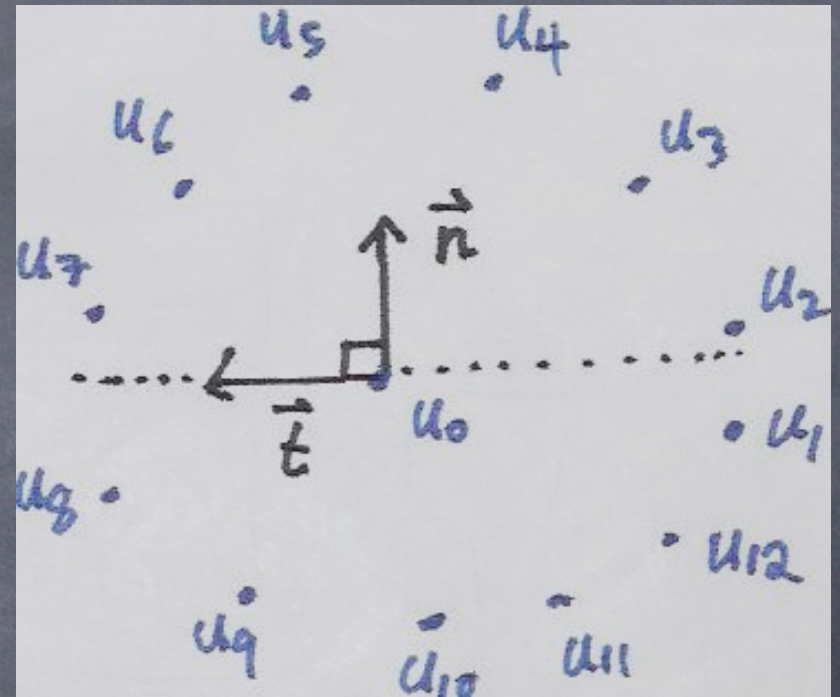 u5 u4
u6 u3
n⃗
u7 u2
u0 u1
t⃗
u8 u12
u9 u11
u10